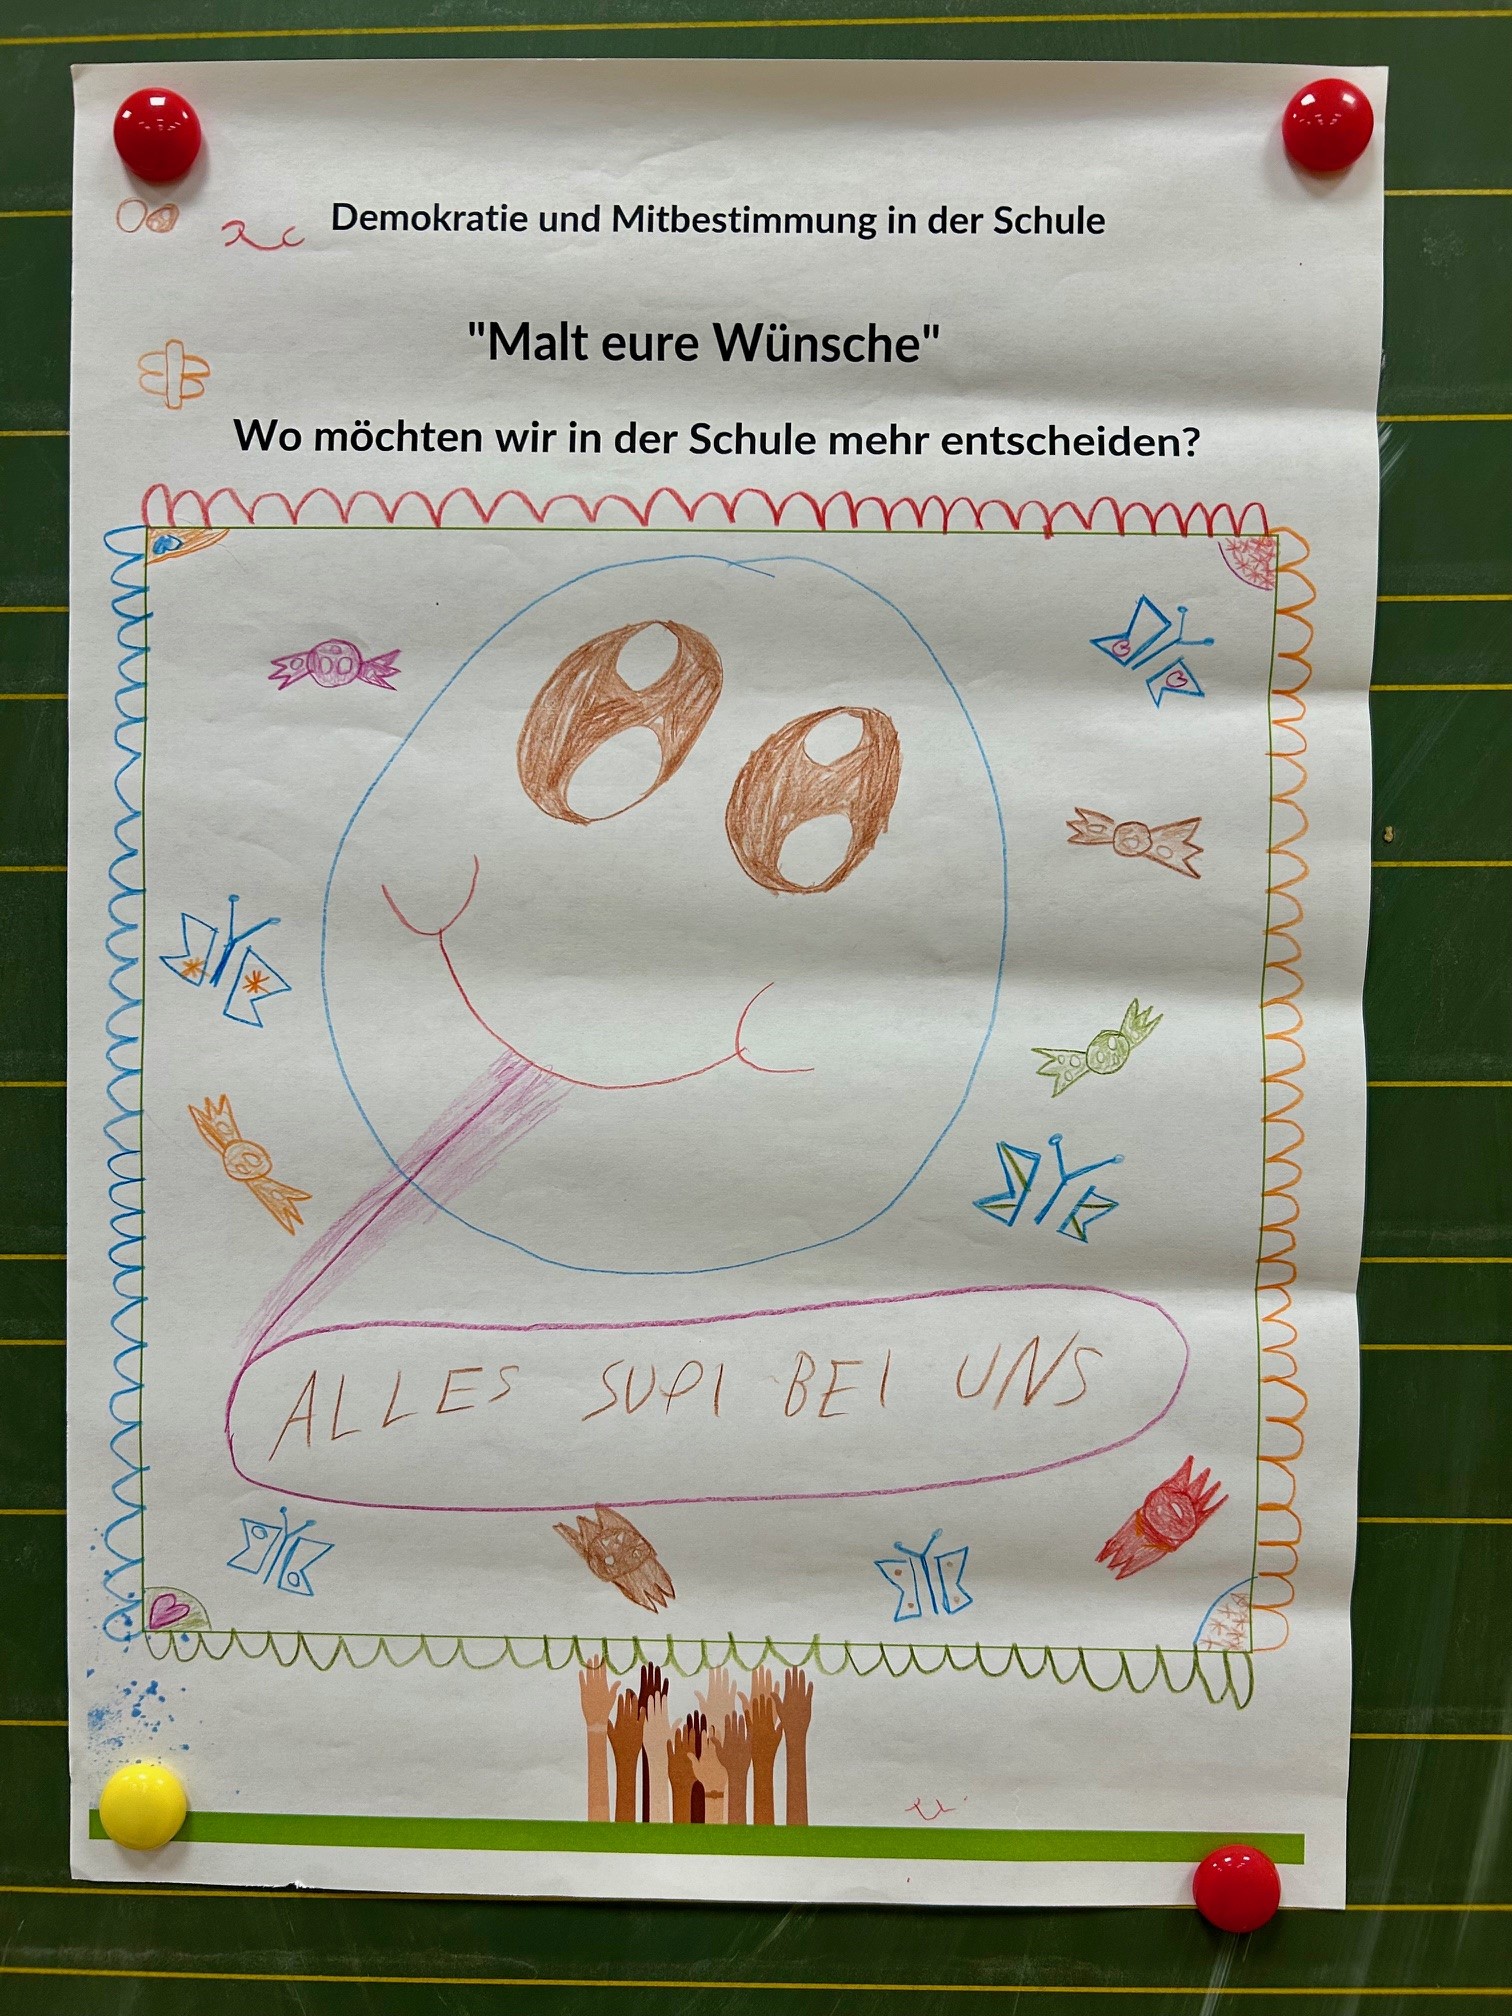 Demokratie und Mitbestimmung in der Schule
"Malt eure Wünsche"
Wo möchten wir in der Schule mehr entscheiden?
ALLES SUPI BEI UNS